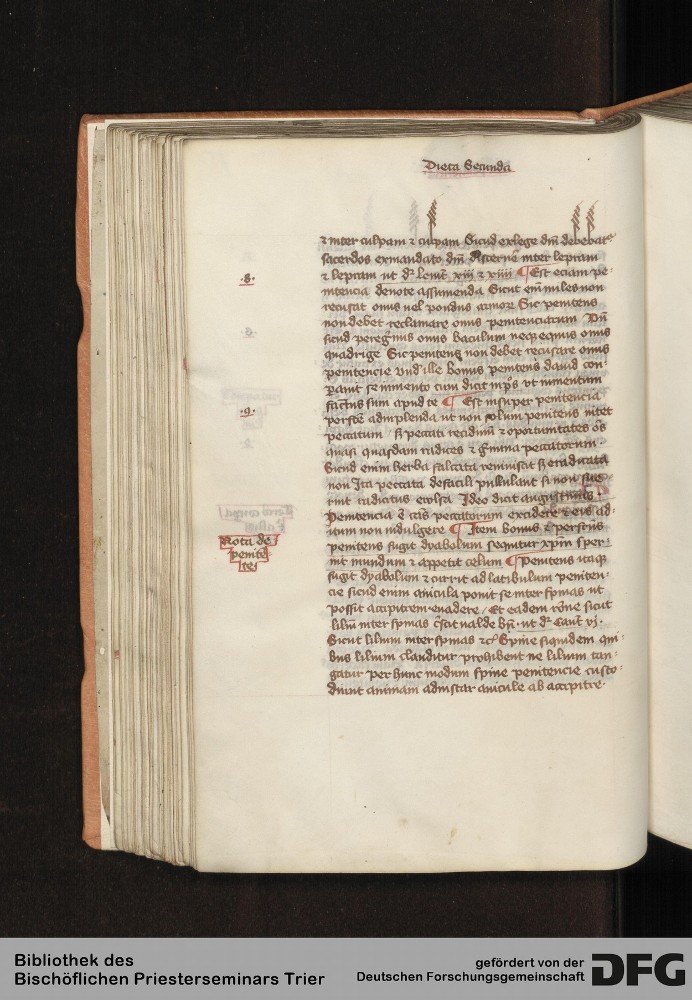 Dieta Secunda
⁊ inter culpam ⁊ culpam Sicud ex lege dm̄ debebat
sacerdos ex mandato dm̄ discernē inter lepram
.8.
⁊ lepram ut dr̄ Leuit̄ xiij ⁊ xiiij ¶ Est eciam pe-
nitencia deuote assumenda Sicut enī miles non
recusat onus uel pondus armorꝝ Sic penitens
non debet reclamare onus penitenciarum Dn̄
sicud peregrinus onus baculum neqꝫ equus onus
quadrige Sic penitens non debet recusare onus
penitencie Vnd̄ ille bonus penitens dauid con-
parauit se iumento cum dicit in ps̄ vt iumentum
factus sum apud te ¶ Est insuper penitencia
.9.
perfecte adinplenda ut non solum penitens uitet
peccatum sꝫ peccati recidiuū ⁊ oportunitates om̄s
quasi quasdam radices ⁊ germina peccatorum
Sicud enim herba falcata reuiuiscit sꝫ eradicata
non Ita peccata de facili pullulant si non fue-
rint radicitus euulsa Ideo dicit augustinus
Penitencia ē cās peccatorum excidere ⁊ eis ad-
itum non indulgere ¶ Item bonus ⁊ perfectus
Nota de
penitens fugit dyabolum sequitur xpm̄ sper-
penitē-
nit mundum ⁊ appetit celum ¶ Penitens itaqꝫ
te
fugit dyabolum ⁊ currit ad latibulum peniten-
cie sicud enim auicula ponit se inter spinas ut
possit accipitrem euadere / Et eadem rōne sicut
lilium inter spinas cresit ualde bn̄ ut dr̄ Cant̄ vj.
Sicut lilium inter spinas ⁊c̄ Spine siquidem qui-
bus lilium clauditur prohibent ne lilium tan-
gatur per hunc modum spine penitencie custo-
diunt animam ad instar auicule ab accipitre
Bibliothek des
Bischöflichen Priesterseminars Trier
gefördert von der
Deutschen Forschungsgemeinschaft
DFG